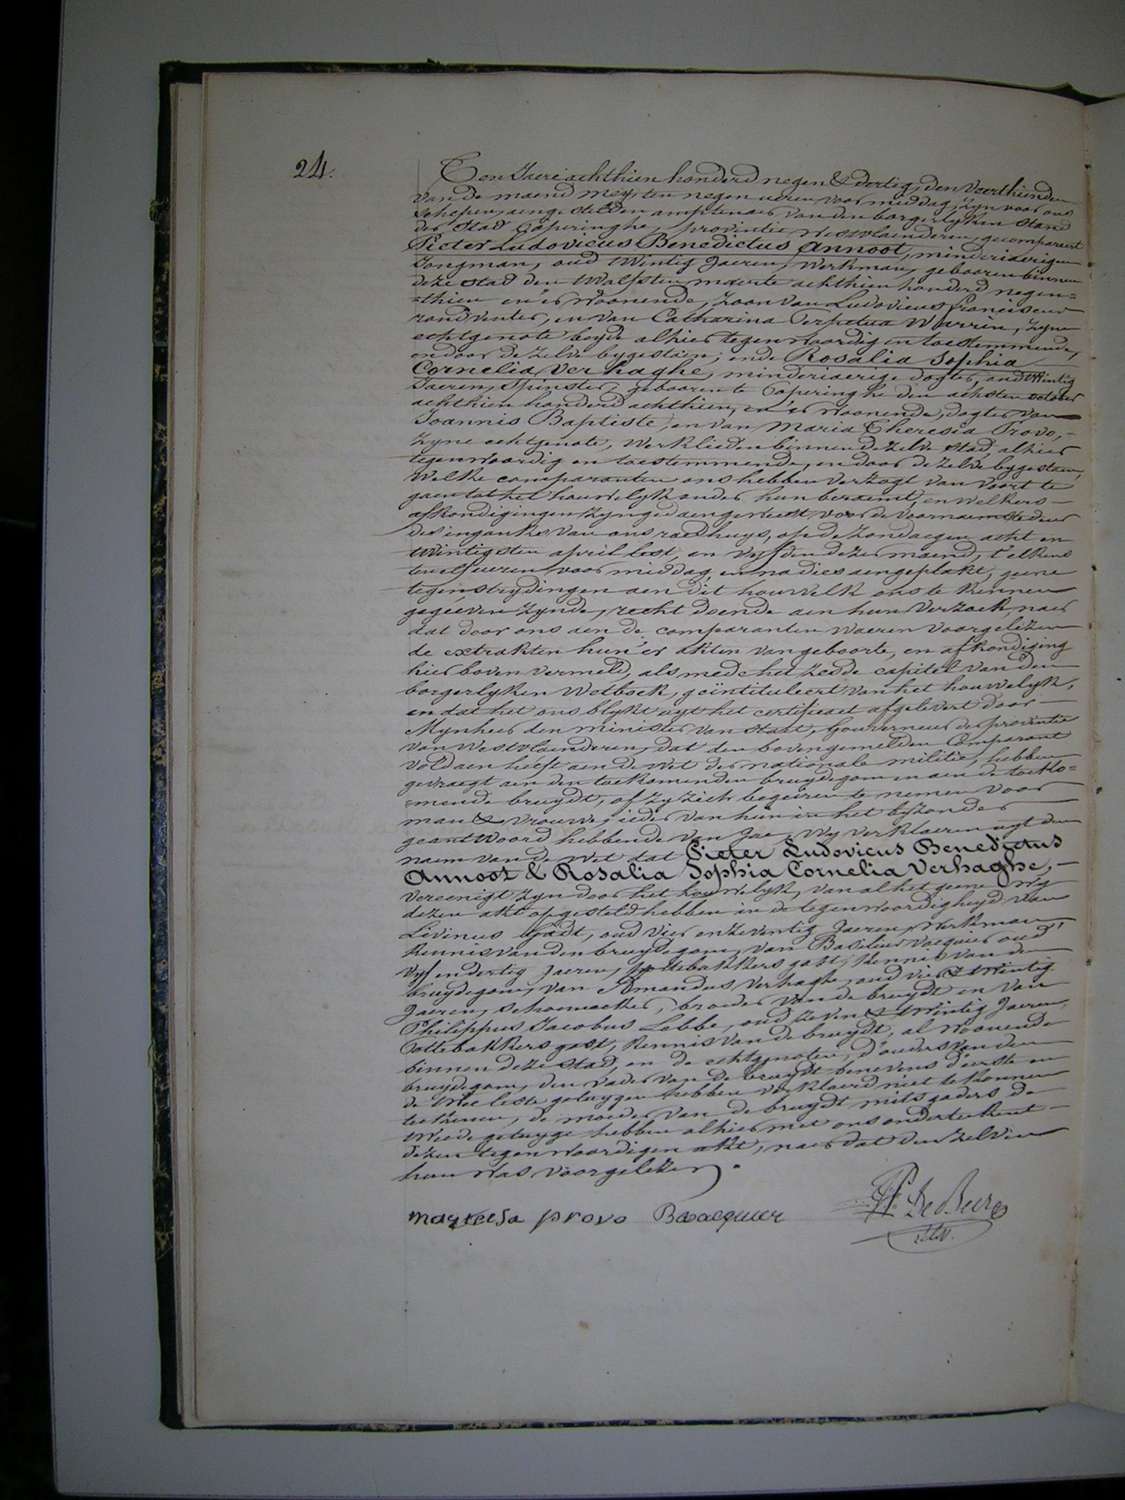 24.
Ten Jaere achthien honderd negen & dertig, den veerthienden
van de maend mey, ten negen ueren voor middag, zyn voor ons
schepen, aengestelden amptenaer van den borgerlyken stand
der stad Poperinghe, provintie Westvlaenderen, gecompareert
Pieter Ludovicus Benedictus Annoot, minderjaerigen
Jongman, oud twintig Jaeren, werkman, gebooren binnen
deze stad den twalfsten maerte achthien honderd negen-
-thien en er woonende, zoon van Ludovicus Franciscus
rondventer, en van Catharina Perpetua Warrin, zyne
echtgenote beyde alhier tegenwoordig en toestemmende,
en door de zelve bygestaen; ende Rosalia Sophia
Cornelia Verhaghe, minderjaerige dogter, oud twintig
Jaeren, spinster, gebooren te Poperinghe den achsten october
achthien honderd achthien, en er woonende, dogter van
Joannis Baptiste, en van Maria Theresia Provo,
zyne echtgenote, werklieden binnen de zelve stad, alhier
tegenwoordig en toestemmende, en door de zelve bygestaen,
Welke comparanten ons hebben verzogt van voort te
gaen tot het houwelyk onder hun beraemt, en welkers
afkondigingen zyn gedaen geweest voor de voornaemste deur
des inganks van ons raedhuys, op de zondaegen acht en
twintigsten april lest, en vyfden dezer maend, t'elkens
ten elf ueren voor middag, en nadies aengeplakt, geene
tegenstrydingen aen dit houwelk ons te kennen
gegeeven zynde, recht doende aen hun verzoek, naer
dat door ons aen de comparanten waeren voorgelezen
de extrakten hun'er akten van geboorte, en afkondiging
hier boven vermeld, als mede het zesde capitel van den
borgerlyken Wetboek, geïntituleert van het houwelyk,
en dat het ons blykt uyt het certificaet afgelevert door
Mynheer den minister van Staet, Gouverneur der provintie
van Westvlaenderen, dat den bovengemelden Comparant
voldaen heeft aen de wet der nationale militie, hebben
gevraegt aen den toekomenden bruydegom en aen de toeko-
-mende bruydt, of zy zich begeiren te nemen voor
man & vrouwe, ieder van hun in het byzonder
geantwoord hebbende van Jae, Wy verklaeren uyt den
naem van de wet dat Pieter Ludovicus Benedictus
Annoot & Rosalia Sophia Cornelia Verhaghe,
vereenigt zyn door het houwelyk, van al het geene wy
dezen akt opgesteld hebben in de tegenwoordigheyd van
Livinus oud vier en zeventig Jaeren, werkman,
kennis van den bruydegom, van Basilius Vacquier oud
vyf en dertig Jaeren, Pottebakkers gast, kennis van den
bruydegom, van Amandus Verhaghe, oud vier & twintig
Jaeren, schoenmaeker, broeder van de bruydt en van
Philippus Jacobus Labbe, oud zeven & twintig Jaeren,
Pottebakkers gast, kennis van de bruydt, al woonende
binnen deze stad, en de echtgenoten, d'ouders van den
bruydegom, den vader van de bruydt benevens d'eerste en
de twee leste getuygen hebben verklaerd niet te konnen
teekenen, de moeder van de bruydt mitsgaders de
twede getuyge hebben alhier met ons onderteekent
dezen tegenwoordigen akt, naer dat den zelven
hun was voorgelezen.
marteesa provo Bavacquier De Beir